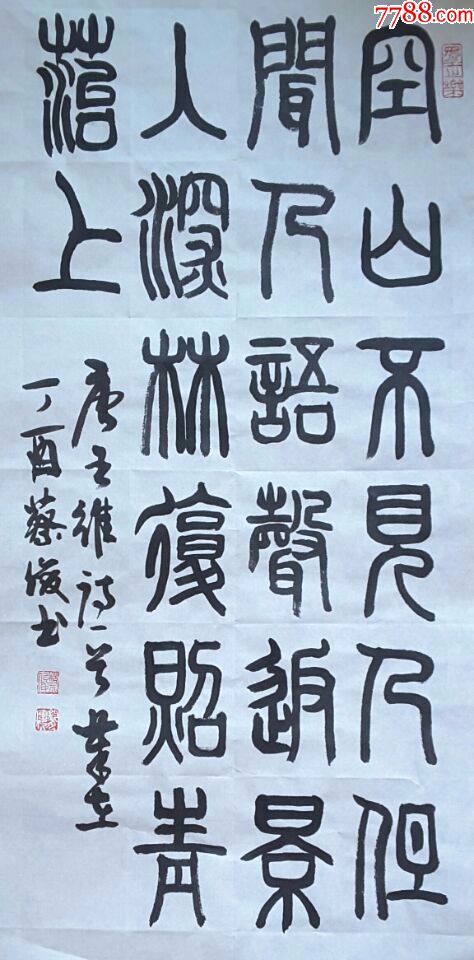 7788.com
空山不見人但
聞人語聲返景
入深林復照青
落上
唐王維詩一首
丁酉蔡俊书